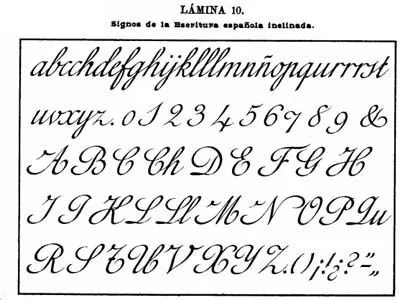 LÁMINA 10.
Signos de la Escritura española inclinada.
abcchdefghijklllmnñopqurrrst
uvxyz. 0 1 2 3 4 5 6 7 8 9 &
A B C Ch D E F G H
I J H L Ll M N O P Qu
R S T U V X Y Z. () ¡!¿?"=„